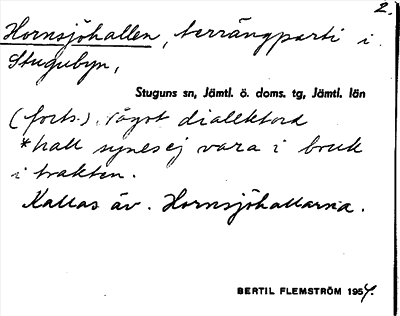 2.
Hornsjöhallen, terrängparti i
Stugubyn,
Stuguns sn, Jämtl. ö. doms. tg, Jämtl. län
(forts.). Något dialektord
*hall synes ej vara i bruk
i trakten.
Kallas äv. Hornsjöhallarna.
BERTIL FLEMSTRÖM 1954.